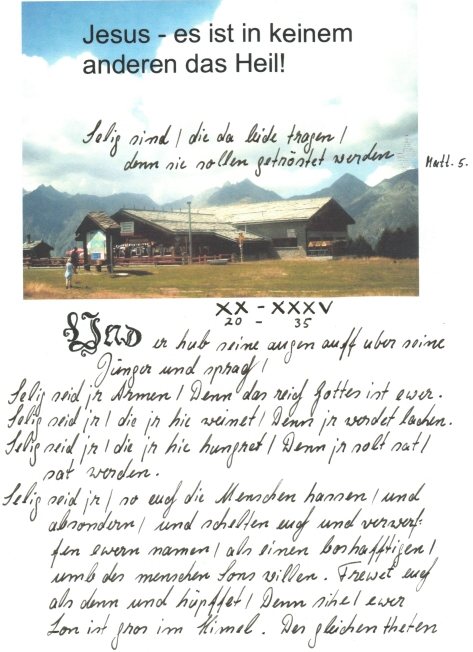 Jesus - es ist in keinem
anderen das Heil!
Selig sind / die da leide tragen /
denn sie sollen getröstet werden
Matt. 5.
XX - XXXV
20 - 35
Und er hub seine augen auff uber seine
Jünger und sprach /
Selig seid jr Armen / Denn das reich Gottes ist ewer.
Selig seid jr / die jr hie weinet / Denn jr werdet lachen.
Selig seid jr / die jr hie hungert / Denn jr solt sat /
sat werden.
Selig seid jr / so euch die Menschen hassen / und
absondern / und schelten euch und verwerf-
fen ewern namen / als einen boshafftigen /
umb des menschen Sons villen. Frewet euch
als denn und hüpffet / Denn sihe / ewer
Lon ist gros im Himel. Des gleichen theten